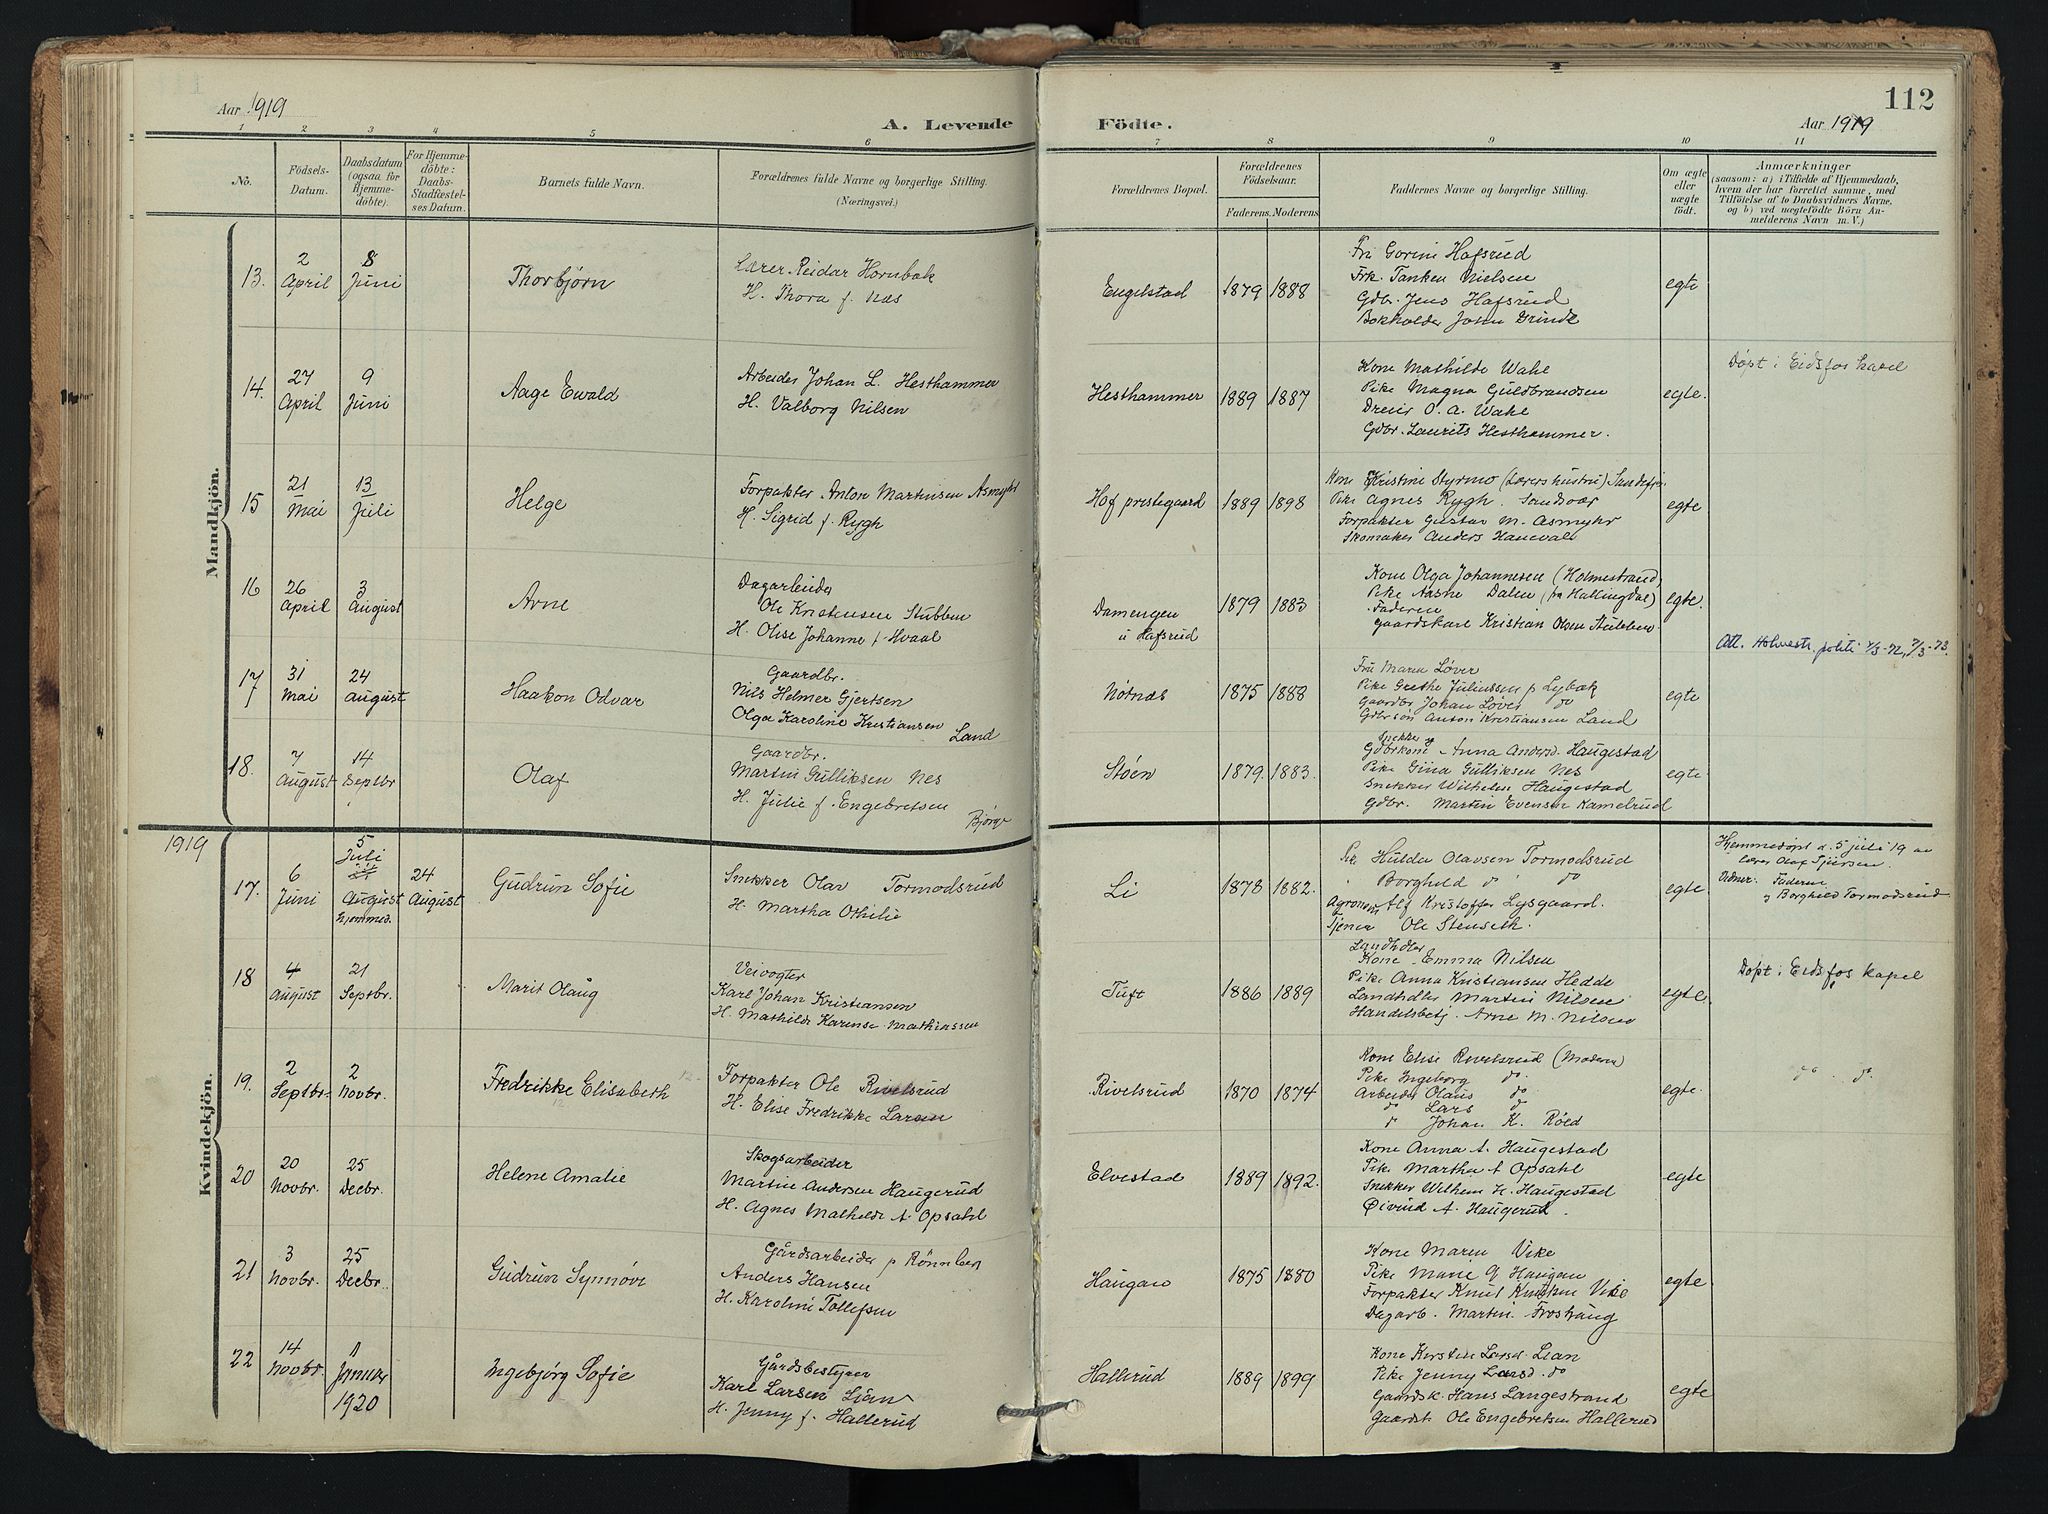 112
Aar 1919
A. Levende Födte.
Aar 1919
1 2 3 4 5 6 7 8 9 10 11
No.
Födsels-Datum.
Daabsdatum (ogsaa for Hjemme-döbte).
For Hjemme-döbte: Daabs-Stadfæstel-ses Datum.
Barnets fulde Navn.
Forældrenes fulde Navne og borgerlige Stilling.
(Næringsvei.)
Forældrenes Bopæl.
Forældrenes Födselsaar.
Faderens. Moderens
Faddernes Navne og borgerlige Stilling.
Om ægte eller uægte födt.
Anmærkninger
(saasom: a) i Tilfælde af Hjemmedaab,
hvem der har forrettet samme, med
Tilföielse af to Daabsvidners Navne,
og b) ved uægtefödte Börn An-
melderens Navn m. V.)
Mandkjön.
13. 2 April 8 Juni Thorbjørn
Lærer Reidar Hornbæk
H. Thora f. Næs
Engelstad 1879 1888
Fru Gorine Hafsrud
Frk. Tanken Nielsen
Gdbr. Jens Hafsrud
Bokholder John Grinde
egte
14. 27 April 9 Juni Aage Ewald
Arbeider Johan L. Hesthammer
H. Valborg Nilsen
Hesthammer 1889 1887
Kone Mathilde Wake
Pike Magna Guldbrandsen
Dreier O. A. Wake
Gdbr. Laurits Hesthammer.
egte.
Døpt i Eidsfos kapel
15 21 Mai 13 Juli Helge
Forpakter Anton Martinsen Asmyhr
H. Sigrid f. Rygh
Hof prestegaard 1889 1898
Kone Kristine Styrmo (Lærers hustru)
Pike Agnes Rygh. Sandsvær
Forpakter Gustav M. Asmyhr
Skomaker Anders Haneval
egte
16 26 April 3 August Arne
Dagarbeider
Ole Kristensen Stubben
H. Olise Johanne f. Hvaal
Damengen u Hafsrud 1879 1883
Kone Olga Johannesen (Holmestrand
Pike Aasne Dalen (fra Hallingdal)
Faderen
Gaardskarl Kristian Olsen Stubben
egte.
Att. Holmestr. politi
17 31 Mai 24 August Haakon Odvar
Gaardbr.
Nils Helmer Gjertsen
Olga Karoline Kristiansen
Land
Nøtnæs 1875 1888
Fru Maren Løver
Pike Grethe Juliussen p Lybæk
Gaardbr Johan Løver do
Gdbrsøn Anton Kristiansen Land
egte
18. 7 August 14 Septbr Olaf
Gaardbr.
Martin Gulliksen Nes
H. Julie f. Engebretsen
Bjørge
Støen 1879 1883.
Snekker og
Gdbrkone Anna Andersd. Haugestad
Pike Gina Gulliksen Nes
Snekker Wilhelm Haugestad
Gdbr. Martin Evensen Kamelrud
egte
1919
Kvindekjön.
17. 6 Juni 5 Juli August hjemmed. 24 August Gudrun Sofie
Snekker Olav Tormodsrud
H. Martha Othilie
Li 1878 1882.
Pike Hulda Olavsen Tormodsrud
" Borghild do do
Agronom Alf Kristoffer Lysgaard.
Tjener Ole Stenseth.
egte
Hjemmedøpt d. 5 juli 19 av
lærer Olaf Sjursen.
Vidner: Faderen
og Borghild Tormodsrud
18 4 August 21 Septbr. Marit Olaug
Veivogter
Karl Johan Kristiansen
H. Mathilde Karense Mathiassen
Tuft 1886 1889
Landhdler
Kone Emma Nilsen
Pike Anna Kristiansen Hedde
Landhdler Martin Nilsen
Handelsbetj. Arne M. Nilsen
egte
Døpt i Eidsfos kapel
19. 2 Septbr. 2 Novbr. Fredrikke Elisabeth
Forpakter Ole Rivelsrud
H. Elise Fredrikke Larsen
Rivelsrud 1870 1874
Kone Elise Rivelsrud (Moderen)
Pike Ingeborg do
Arbeider Olaus do
do Lars do
do Johan K. Røed
egte
do do
20 20 Novbr. 25 Decbr. Helene Amalie
Skogsarbeider
Martin Andersen Haugerud
H. Agnes Mathilde A Opsahl
Elvestad 1889 1892.
Kone Anna A. Haugestad
Pike Martha A Opsahl
Snekker Wilhelm H. Haugestad
Øivind A. Haugerud.
egte
21 3 Novbr. 25 Decbr. Gudrun Synnøve
Gårdsarbeider p Rønneberg
Anders Hansen
H. Karoline Tollefsen
Haugan 1875 1880
Kone Maren Vike
Pike Marie G Haugan
Forpakter Knut Knutsen Vike
Dagarb. Martin Frostraug
egte
22 14 Novbr. 11 Januar 1920 Ingebjørg Sofie
Gårdsbestyrer
Karl Larsen Lian
H. Jenny f. Hallerud
Hallerud 1889 1899
Kone Kirstin Larsd. Lian
Pike Jenny Larsd. do
Gaardsk. Hans Langestrand
Gaardst Ole Engebretsen Hallerud
egte